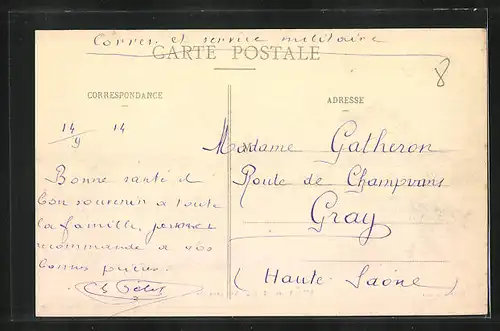 Corresp. et service militaire
CARTE POSTALE
8
CORRESPONDANCE
ADRESSE
14/9 14
Bonne santé et
bon souvenir à toute
la famille,
recommande à vos
bonnes prières.
Madame Gatheron
Route de Champvans
Gray
(Haute-Saône)